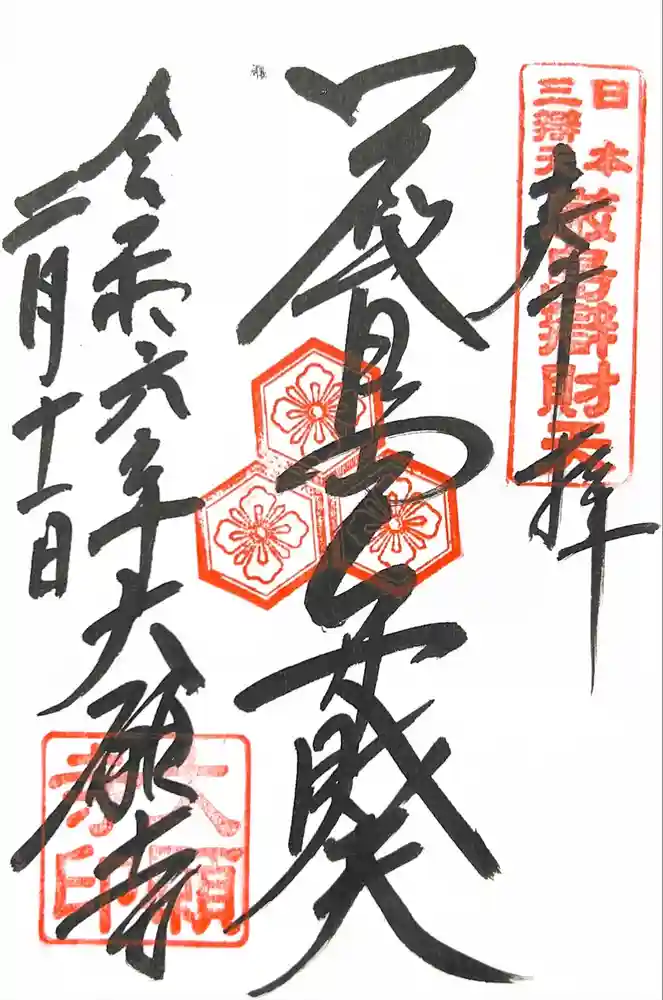 奉拝
日本
三辯天
厳島辯財天
厳島弁財天
令和六年 大願寺
二月十一日
大願
寺印